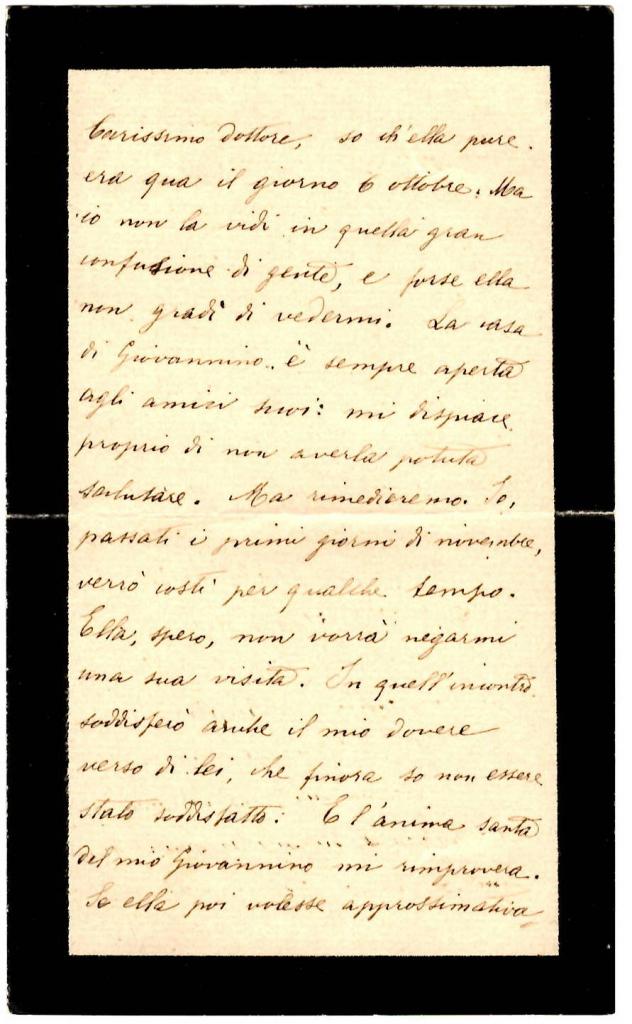 Carissimo Dottore, so ch'ella pure
era qua il giorno 6 ottobre. Ma
io non la vidi in quella gran
confusione di gente, e forse ella
non gradì di vedermi. La casa
di Giovannino è sempre aperta
agli amici suoi: mi dispiace
proprio di non averla potuta
salutare. Ma rimedieremo. Io,
passati i primi giorni di novembre,
verrò costì per qualche tempo.
Ella, spero, non vorrà negarmi
una sua visita. In quell'incontro
soddisferò anche il mio dovere
verso di lei, che finora so non essere
stato soddisfatto. E l'anima santa
del mio Giovannino mi rimprovera.
Se ella poi volesse approssimativa